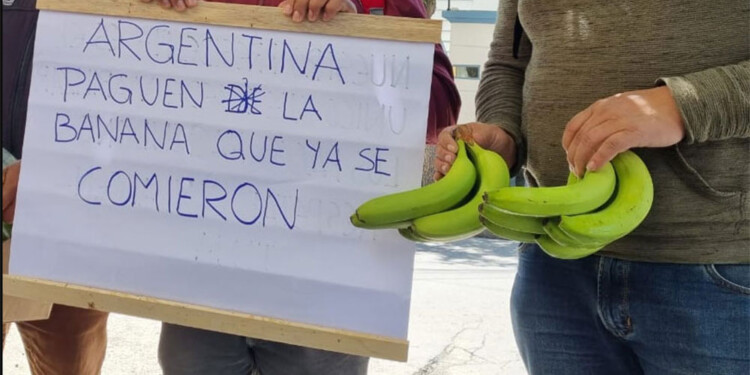 ARGENTINA
PAGUEN LA
BANANA QUE YA SE
COMIERON